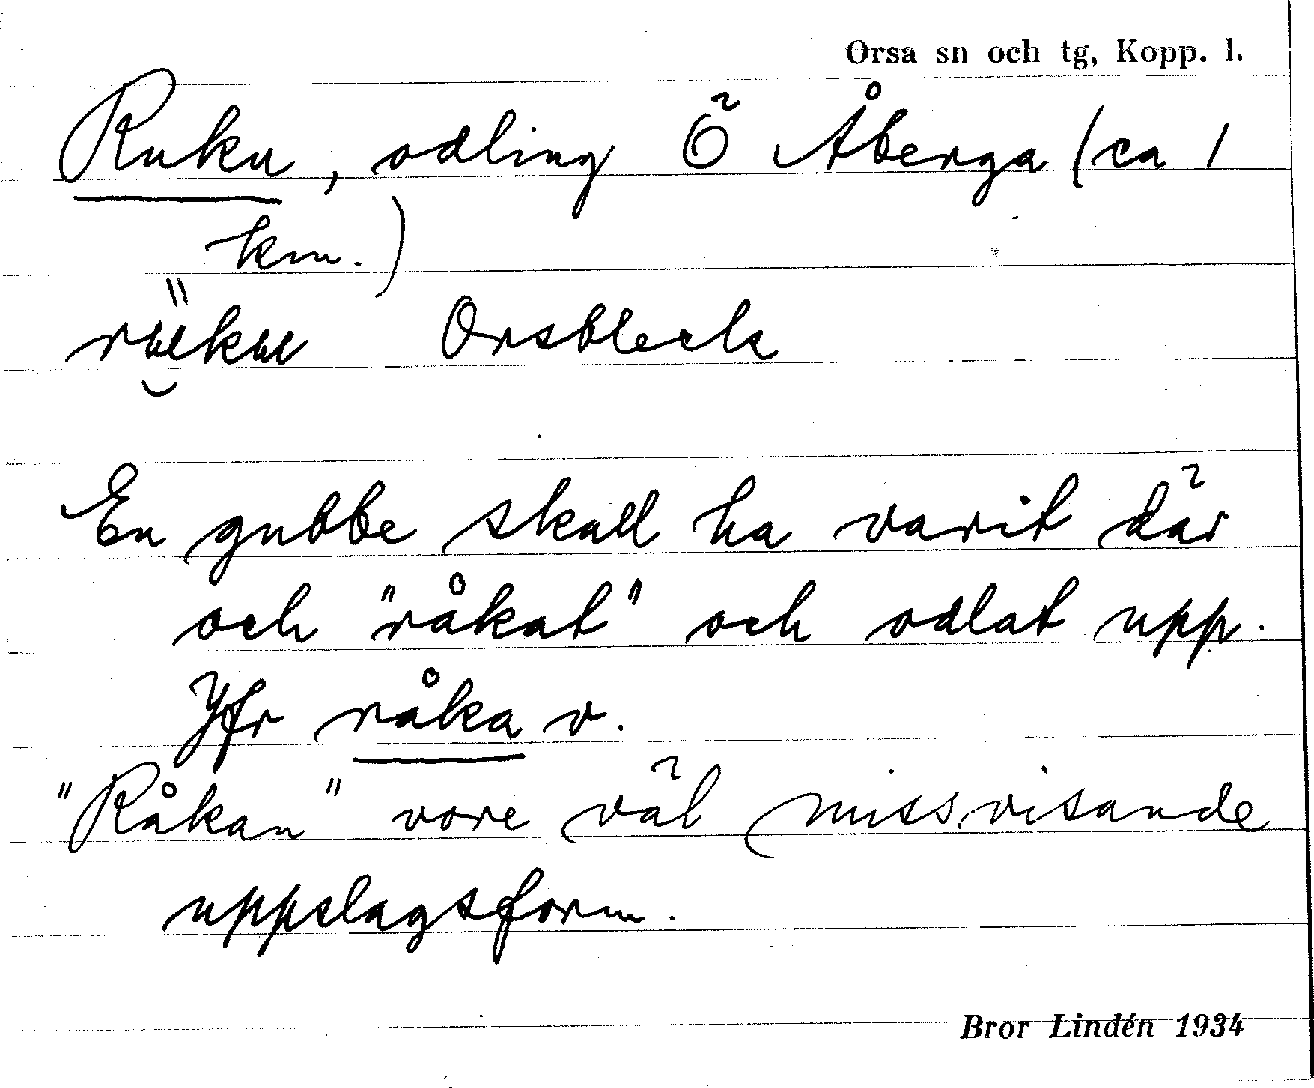 Orsa sn och tg, Kopp. l.
Ruku, odling Ö Åberga (ca 1
km.)
Orsbleck
En gubbe skall ha varit där
och "råkat" och odlat upp.
Jfr råka v.
"Råkan" vore väl missvisande
uppslagsform.
Bror Lindén 1934